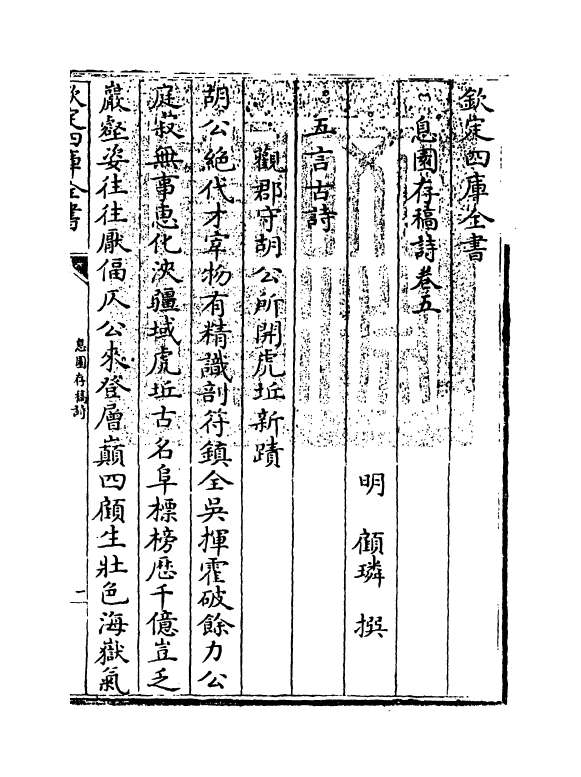 欽定四庫全書
息園存稿詩卷五
明 顧璘 撰
五言古詩
觀郡守胡公所開虎丘新蹟
胡公絶代才宰物有精識剖符鎮全吳揮霍破餘力公
庭寂無事恵化浹疆域虎丘古名阜標榜歴千億豈乏
巖壑姿往往厭偪仄公來登層巔四顧生壯色海嶽氣
欽定四庫全書
息園存稿詩